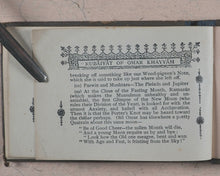 RUBÁIYÁT OF OMAR KHAYYÁM
breaking off something like our Wood-pigeon's Note,
which she is said to do at
(20) Parwin and Mushtara—The Pleiads and Jupiter
(21) At the Close of the Fasting Month, Ramazán
(which makes the Musulman unhealthy and un-
amiable), the first Glimpse of the New Moon (who
rules their Division of the Year), is looked for with the
utmost Anxiety, and hailed with all Acclamation.
Then it is that the Porter's Knot may be heard toward
the Cellar perhaps. Old Omar has elsewhere a pretty
Quatrain about this same moon—
"Be of Good Cheer—the sullen Month will die,
And a young Moon requite us by and by:
Look how the Old one meagre, bent, and wan
With Age and Fast, is fainting from the Sky!"